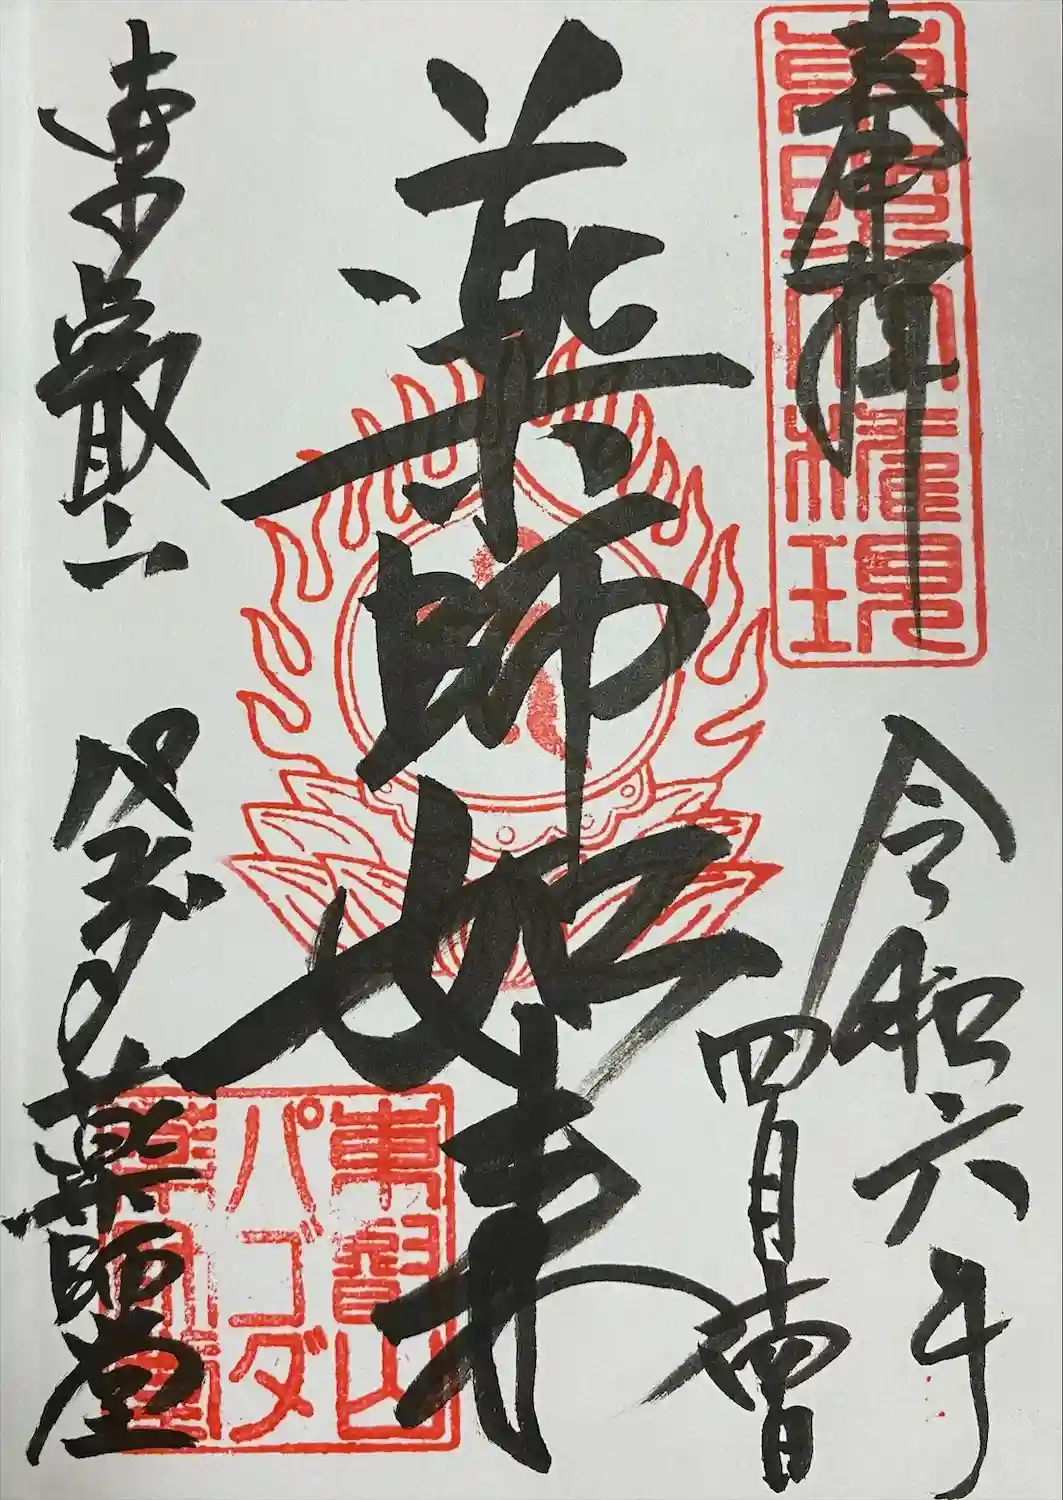 奉拝
東照大権現
令和六年
四月
薬師如来
東叡山
パゴダ薬師堂
東叡山
パゴダ
薬師堂